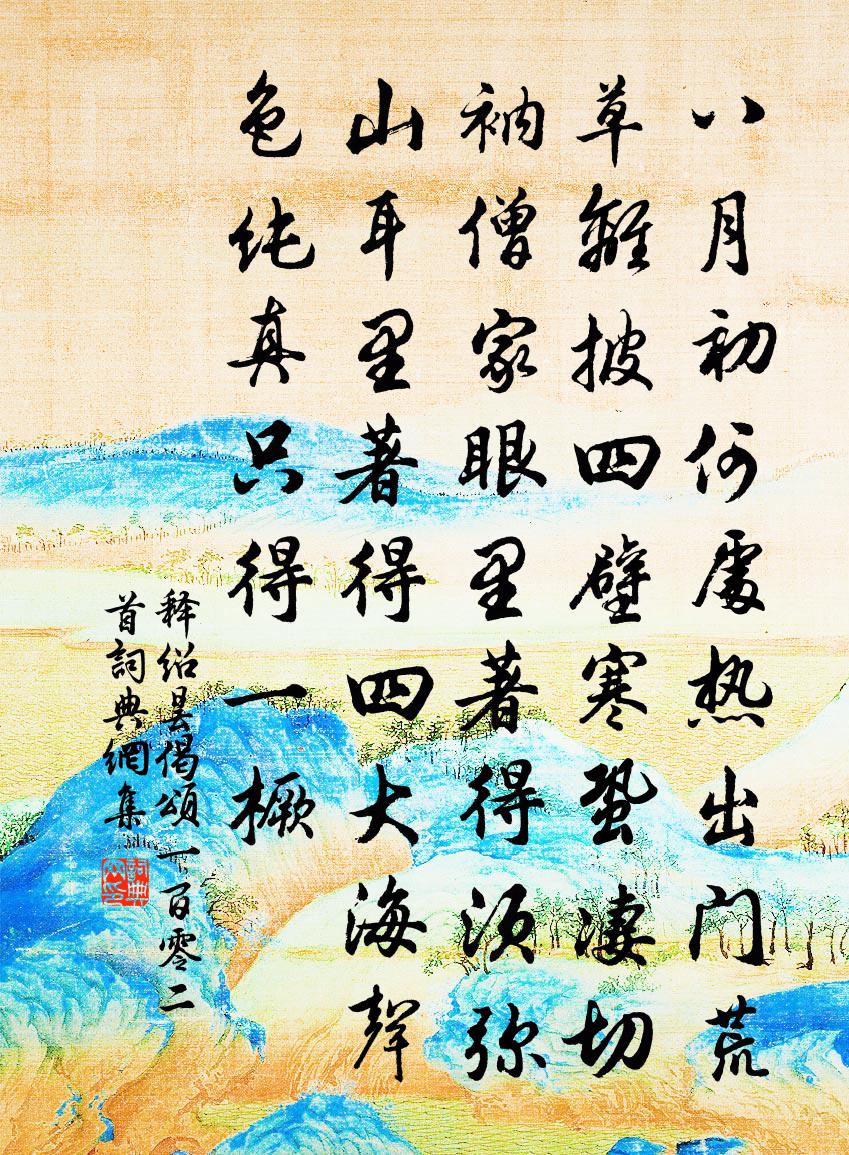 八月初何處热出门荒
草離披四壁寒蛩凄切
衲僧家眼里著得须弥
山耳里著得四大海聲
色纯真只得一橛
释绍昙偈頌一百零二
首詞典網集